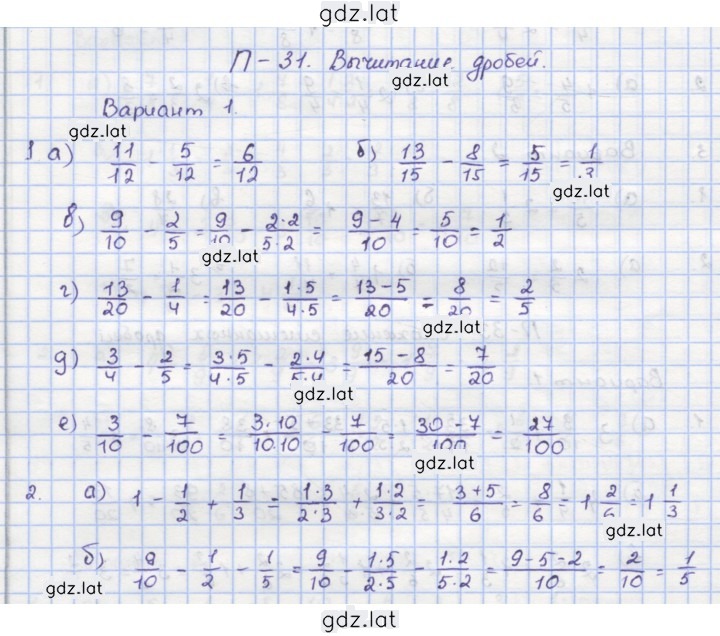 gdz.lat
П-31. Вычитание дробей.
gdz.lat
Вариант 1.
gdz.lat
1 а) 11/12 - 5/12 = 6/12 б) 13/15 - 8/15 = 5/15 = 1/3
gdz.lat
в) 9/10 - 2/5 = 9/10 - 2·2/5·2 = 9-4/10 = 5/10 = 1/2
gdz.lat
г) 13/20 - 1/4 = 13/20 - 1·5/4·5 = 13-5/20 = 8/20 = 2/5
gdz.lat
д) 3/4 - 2/5 = 3·5/4·5 - 2·4/5·4 = 15-8/20 = 7/20
gdz.lat
е) 3/10 - 7/100 = 3·10/10·10 - 7/100 = 30-7/100 = 27/100
gdz.lat
2. а) 1 - 1/2 + 1/3 = 1·3/2·3 + 1·2/3·2 = 3+5/6 = 8/6 = 1 2/6 = 1 1/3
gdz.lat
б) 9/10 - 1/2 - 1/5 = 9/10 - 1·5/2·5 - 1·2/5·2 = 9-5-2/10 = 2/10 = 1/5
gdz.lat
gdz.lat